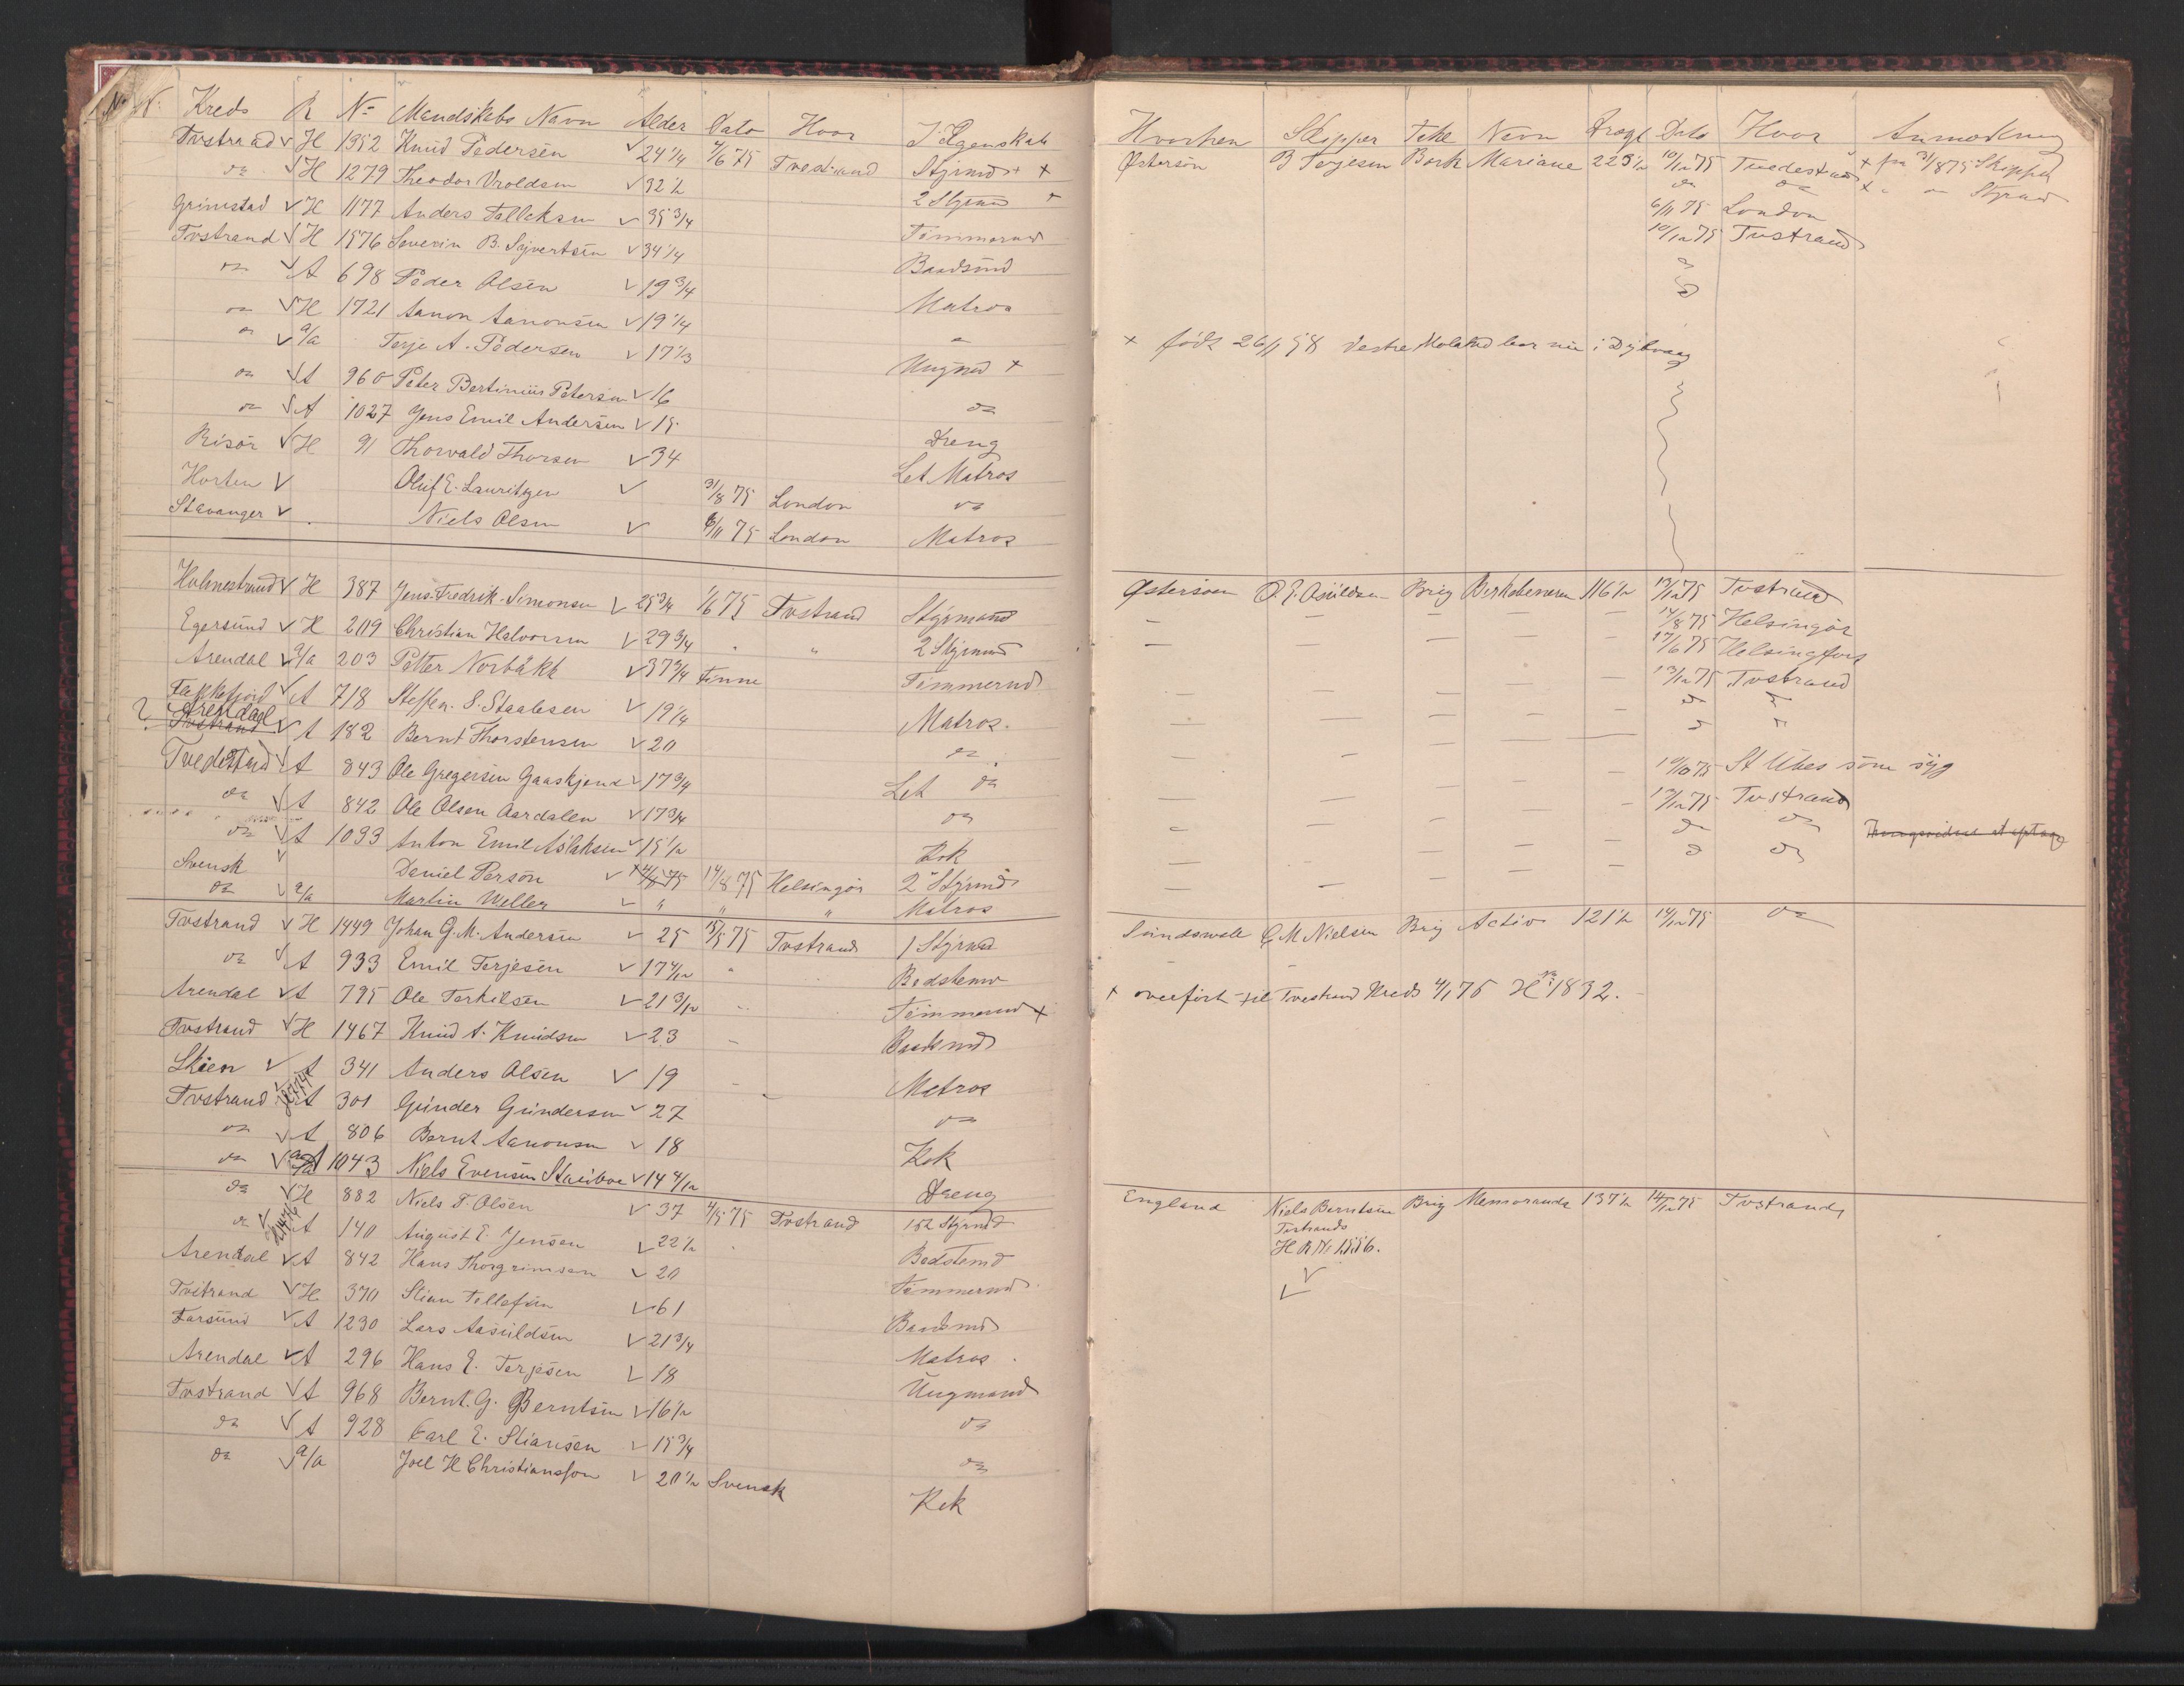 No. Kreds R No Mandskabs Navn Alder Dato Hvor I Egenskab
Tvstrand H 1352 Knud Pedersen 24 1/4 4/6 75 Tvestrand Styrmd + +
do H 1279 Theodor Vroldsen 32 1/2 2 Styrmd +
Grimstad H 1177 Anders Falleksen 35 3/4 Tømmermd
Tvstrand H 1576 Severin B. Syvertsen 34 1/4 Baadsmd
do A 698 Peder Olsen 19 3/4 Matros
do H 1721 Aanon Aanonsen 19 1/4 do
do a/a Terje A. Pedersen 17 1/3 Ungmd +
do A 960 Peter Bertinius Petersen 16 do
do A 1027 Jens Emil Andersen 15 Dreng
Risør H 91 Thorvald Thorsen 34 Let Matros
Horten Oluf E. Lauritzen 31/8 75 London do
Stavanger Niels Olsen 6/11 75 London Matros
Holmestrand H 387 Jens Fredrik Simonsen 25 3/4 1/6 75 Tvstrand Styrmand
Egersund H 209 Christian Halvorsen 29 3/4 " " 2 Styrmd
Arendal a/a 203 Petter Norbäkk 37 3/4 Finne Tømmermd
Flekkefjord A 718 Steffen S. Staalesen 19 1/4 Matros.
? Arendal Tvstrand A 182 Bernt Thorstensen 20 do
Tvedestrand A 843 Ole Gregersen Gaaskjend 17 3/4 Let do
do A 842 Ole Olsen Aardalen 17 3/4 do
do A 1033 Anton Emil Aslaksen 15 1/2 Kok
Svensk Daniel Person 14/8 75 14/8 75 Helsingør 2 Styrmd
do a/a Martin Weller " " " Matros
Tvstrand H 1449 Johan G. M. Andersen 25 15/5 75 Tvstrand 1 Styrmd
do A 933 Emil Terjesen 17 4/12 " Bedstemd
Arendal A 795 Ole Terkilsen 21 3/12 Tømmermd +
Tvstrand H 1467 Knud A. Knudsen 23 Baadsmd
Skien A 341 Anders Olsen 19 Matros
Tvstrand A 301 Gunder Gundersen 27 do
do A 806 Bernt Aanonsen 18 Kok
do A 1043 Niels Evensen Staubo 14 4/12 Dreng
do H 882 Niels T. Olsen 37 4/5 75 Tvstrand 1st Styrmd
do A 140 August E. Jensen 22 1/2 Bedstemd
Arendal A 842 Hans Thorgrimsen 20 Tømmermd
Tvstrand H 370 Stian Tellefsen 61 Baadsmd
Farsund A 1230 Lars Aasuldsen 21 3/4 Matros
Arendal A 296 Hans E. Terjesen 18 Ungmand
Tvstrand A 968 Bernt G. Berntsen 16 1/2 do
do A 928 Carl E. Stiansen 15 3/4 do
do a/a Joel H Christiansson 20 1/2 Svensk Kok
Hvorhen Skipper Takl Navn Drægt Dato Hvor Anmærkning
Østersøn B Terjesen Bark Mariane 225 1/2 10/12 75 Tvedestrand + fra 31/8 75 Skipper
do do + " do Styrmd
6/11 75 London
10/12 75 Tvstrand
+ født 26/1 58 Vestre Moland bor nu i Dybvaag
Østersøen O. E. Asuldsen Brig Birkebeneren 116 1/2 13/12 75 Tvstrand
14/8 75 Helsingør
17/6 75 Helsingfors
13/12 75 Tvstrand
do do
do do
19/10 75 St Ubes som syg
13/12 75 Tvstrand
do do
do do
Sundswall G M Nielsen Brig Activ 121 1/2 14/12 75 do
+ overført til Tvestrand Kreds 4/1 76 H No 1832.
England Niels Berntsen Brig Memoranda 137 1/2 14/12 75 Tvstrand
Tvstrands
H R No 1556.